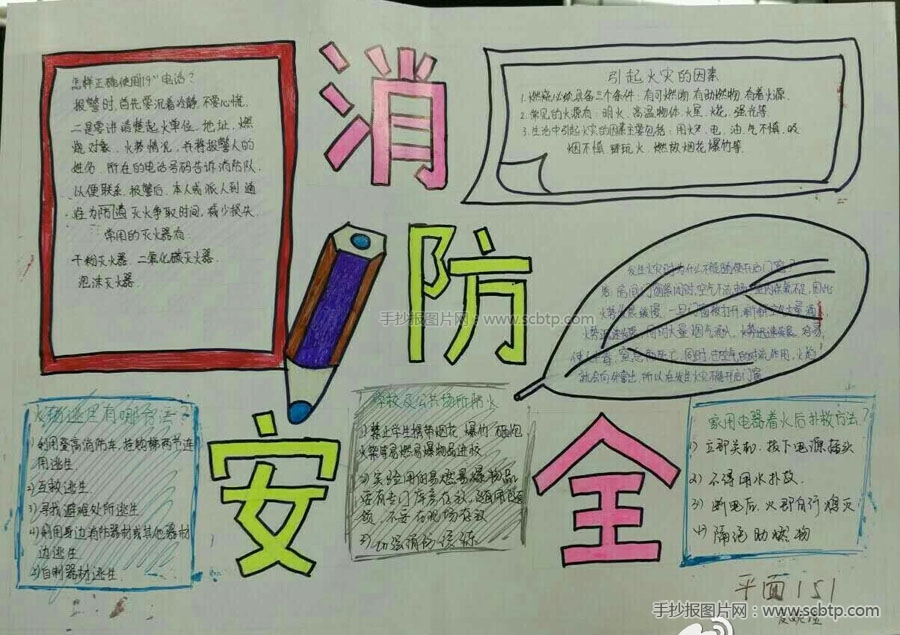 消
防
安
全
怎样正确使用119电话？
报警时,首先要沉着冷静,不要心慌.
二是要讲清楚起火单位、地址、燃
烧对象、火势情况,并将报警人的
姓名、所在的电话号码告诉消防队
以便联系.报警后,本人或派人到通
灭火争取时间,减少损失.
常用的灭火器有
干粉灭火器.二氧化碳灭火器.
泡沫灭火器.
引起火灾的因素
1.燃烧必须具备三个条件:有可燃物 有助燃物 有着火源.
2.常见的火源有:明火、高温物体、火星、火花、强光等.
3.生活中引起火灾的因素主要包括:用火、电、油、气不慎,吸
烟不慎 玩火、燃放烟花爆竹等.
发生火灾时为什么不能随便开启门窗?
手抄报图片网：www.scbtp.com
就会向外窜出,所以在发生火灾不能开启门窗
火场逃生有哪些方法?
1)利用登高消防车,挂钩梯两节连
用逃生.
2)互救逃生
3)寻找避难处所逃生
4)利用身边消防器材或其他器材
边逃生
5)自制器材逃生
学校及公共场所防火
1)禁止学生携带烟花 爆竹 砸炮
火柴等易燃易爆物品进校
2)实验用的易燃易爆物品
要有专门库房存放,随用随
领,不要在现场存放
3)加强消防
家用电器着火后扑救方法?
1)立即关机,拔下电源插头
2)不得用水扑救.
3)断电后,火即自行熄灭
4)隔绝助燃物
平面151
手抄报图片网：www.scbtp.com